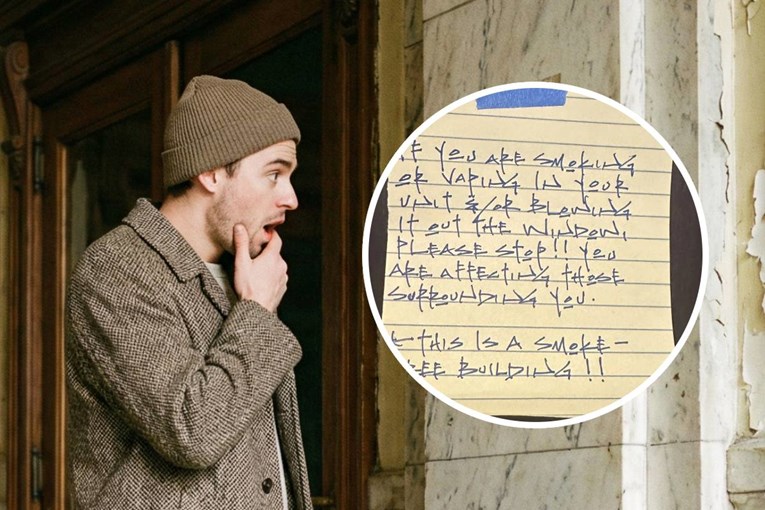 IF YOU ARE SMOKING
OR VAPING IN YOUR
UNIT &/OR BLOWING
IT OUT THE WINDOW,
PLEASE STOP!! YOU
ARE AFFECTING THOSE
SURROUNDING YOU.
THIS IS A SMOKE-
BUILDING!!